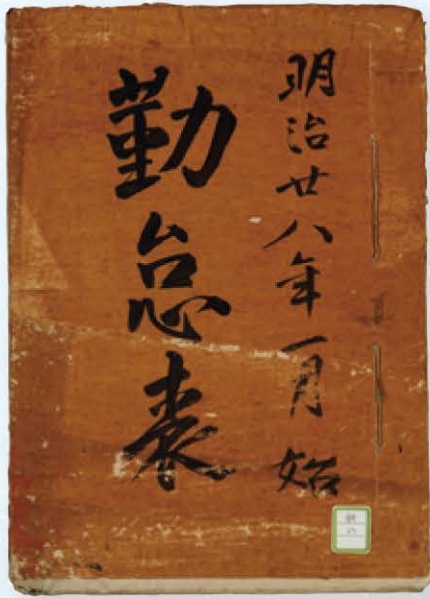 明治廿八年一月始
勤怠表